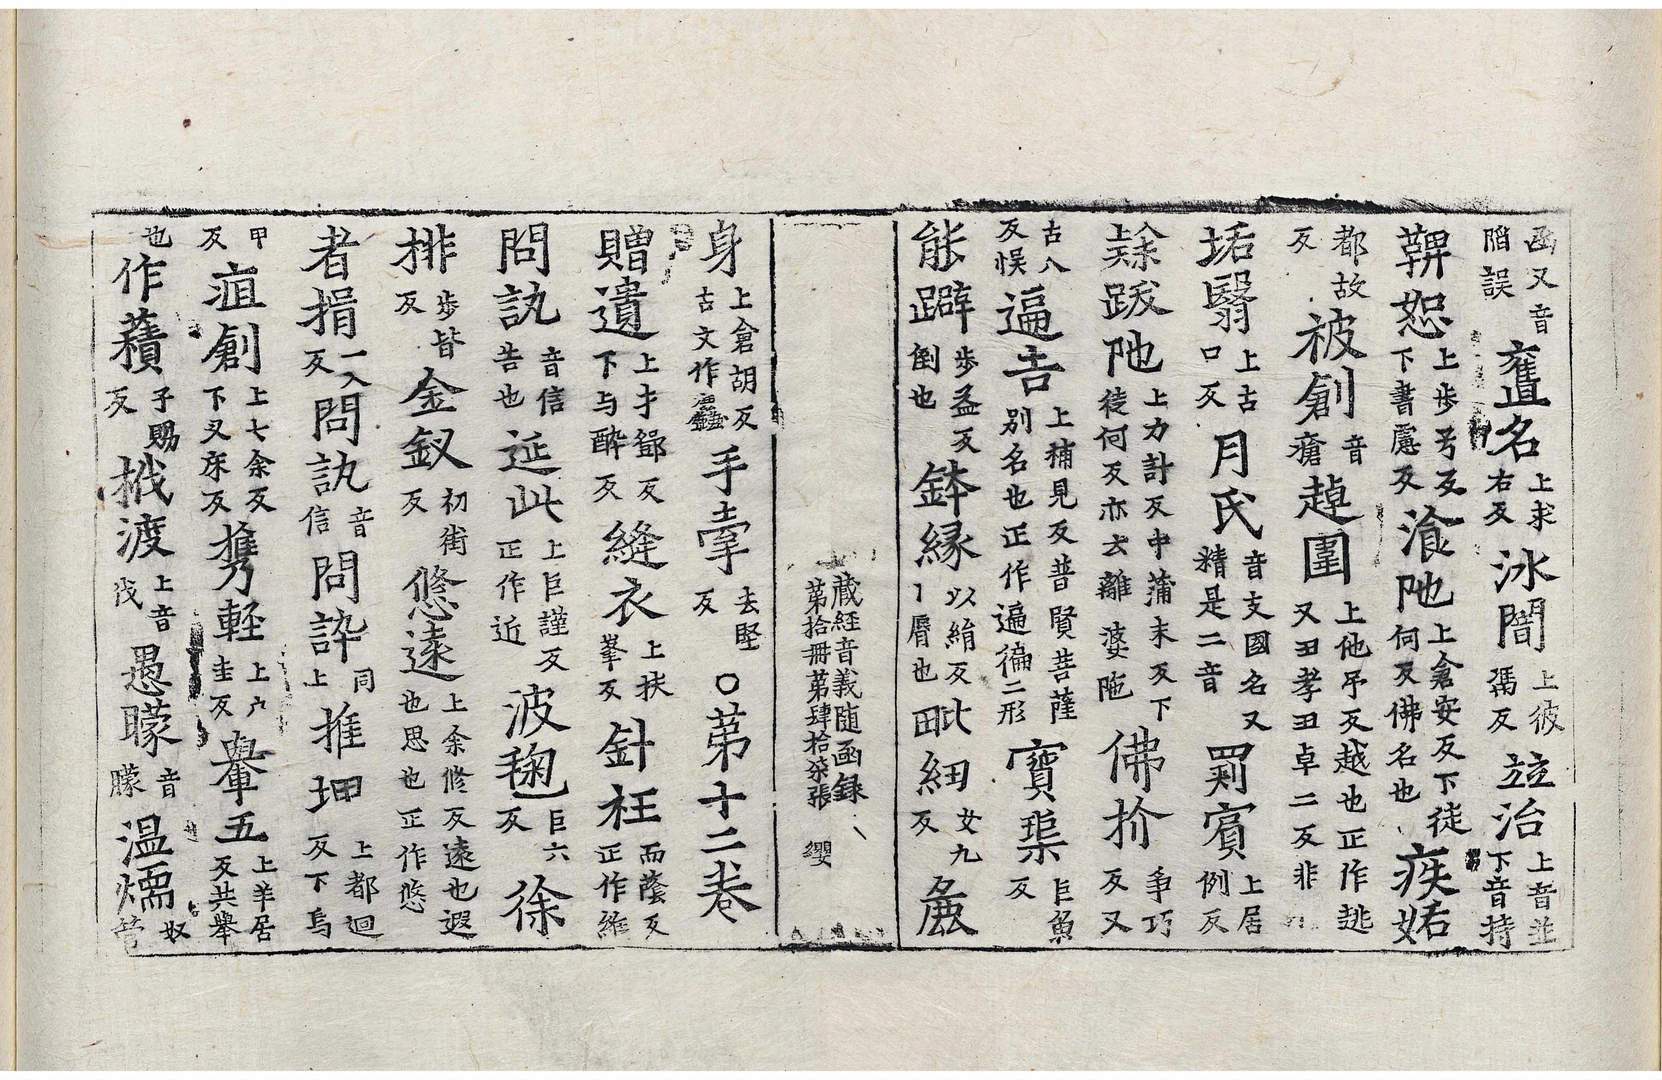 函又音䧟誤 舊名上求右反 泳闇上彼馮反 竝治上音並下音持
鞞恕上步兮反下書慮反 湌陁上倉安反下徒何反佛名也 疾妬
都故反 被創音瘡 趠圍上他吊反越也正作趒又丑孝丑卓二反非
垢翳上古口反 月氏音支國名又精是二音 罽賓上居例反
𨽻跋陁上力計反中蒲末反下徒何反亦云離婆陁 佛扴爭巧反又
古八反悞 逼吉上補見反普賢菩薩別名也正作遍徧二形 寶璖巨魚反
能躃步益反倒也 鉢緣以絹反 毗細女九反 麁
藏經音義随函録 第拾冊第肆拾柒張 纓
身上倉胡反古文作麤 手㧖去堅反 〇第十二卷
贈遺上才鄧反下与醉反 縫衣上扶峯反 針衽而䕃反正作絍
問訊音信告也 延此上巨謹反正作近 波毱巨六反 徐
排步皆反 金釵初街反 悠遠上余修反遠也遐也思也正作悠
者捐一入反 問訊音信 問誶同上 推坤上都迴反下烏
甲反 疽創上七余反下叉床反 攜輕上户圭反 轝五上羊居反共舉
也 作𧂐子賜反 栰渡上音筏 愚矇音朦 温燸奴管